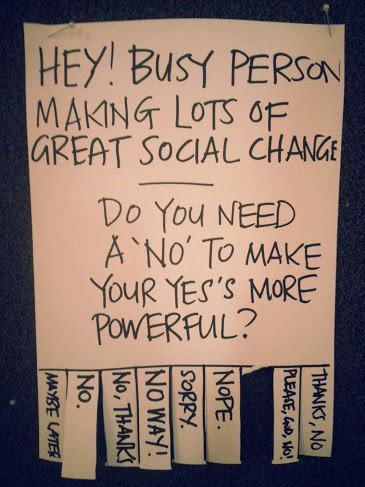 HEY! BUSY PERSON
MAKING LOTS OF
GREAT SOCIAL CHANGE
DO YOU NEED
A 'NO' TO MAKE
YOUR YES'S MORE
POWERFUL?
MAYBE LATER
NO.
NO, THANKS
NO WAY!
SORRY.
NOPE.
PLEASE, GOD, NO!
THANKS, NO